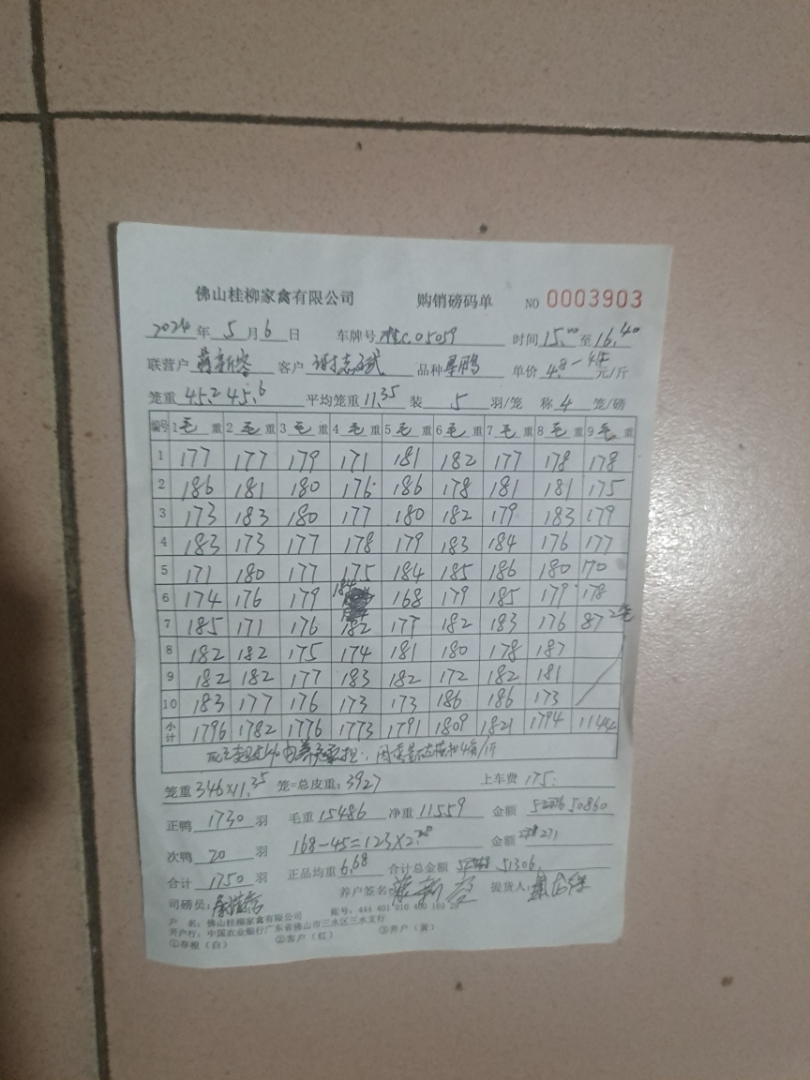 佛山桂柳家禽有限公司 购销磅码单 NO 0003903
2024年 5月 6日 车牌号 C05059 时间 15.00 至 16.40
联营户 新容 客户 谢志斌 品种 鸭 单价 4.8-4.4 元/斤
笼重 45.2 45.6 平均笼重 11.35 装 5 羽/笼 称 4 笼/磅
编号 1毛重 2毛重 3毛重 4毛重 5毛重 6毛重 7毛重 8毛重 9毛重
1 177 177 179 171 181 182 177 178 178
2 186 181 180 176 186 178 181 181 175
3 173 183 180 177 180 182 179 183 179
4 183 173 177 178 179 183 184 176 177
5 171 180 177 175 184 185 186 180 170
6 174 176 179 184 168 179 185 179 178
7 185 171 176 182 177 182 183 176 87 2笼
8 182 182 175 174 181 180 178 187
9 182 182 177 183 182 172 182 181
10 183 177 176 173 173 186 186 173
小计 1796 1782 1776 1773 1791 1809 1821 1794 1144
笼重 346×11.35 笼=总皮重: 3927 上车费 175.
正鸭 1730 羽 毛重 15486 净重 11559 金额 50860
次鸭 20 羽 168-45=123×2.20 金额 271
合计 1750 羽 正品均重 6.68 合计总金额 51306
司磅员: 养户签名: 提货人:
户 名: 佛山桂柳家禽有限公司 账号:
开户行: 中国农业银行广东省佛山市三水区三水支行
①存根(白) ②客户(红) ③养户(黄)